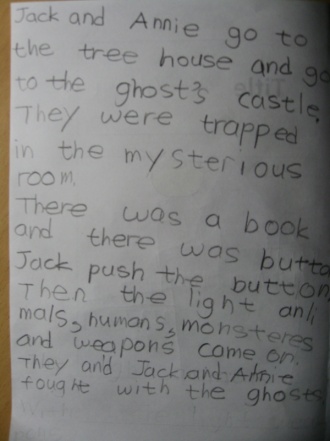 Jack and Annie go to
the tree house and go
to the ghost's castle.
They were trapped
in the mysterious
room.
There was a book
and there was butto
Jack push the button
Then the light ani
mals, humans, monsteres
and weapons come on.
They and Jack and Annie
fought with the ghosts